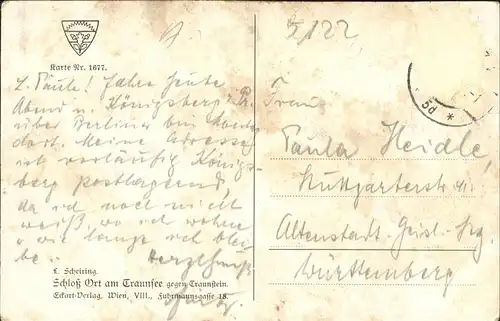 5/122
Karte Nr. 1677.
L. Paula! Fahre heute
Abend n. Königsberg
über Berlin
Meine Adresse
ist vorläufig Königs-
berg postlagernd,
da ich noch nicht
weiß, wo ich wohne
u. wie lange ich blei-
be.
L. Scheiring.
Schloß Ort am Traunsee gegen Traunstein.
Eckart-Verlag, Wien, VIII., Fuhrmannsgasse 18.
5d *
Frau
Paula Heidle,
Stuttgarterstr. 41.
Altenstadt-Geisl-Stg
Württemberg